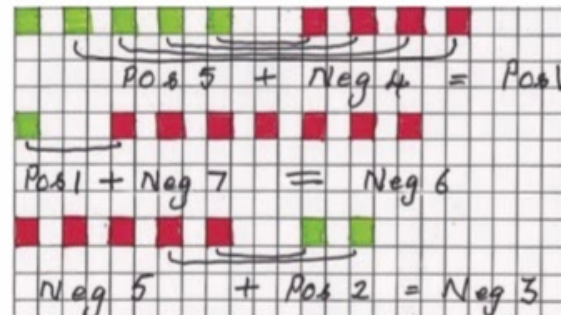 Pos 5 + Neg 4 = Pos 1
Pos 1 + Neg 7 = Neg 6
Neg 5 + Pos 2 = Neg 3